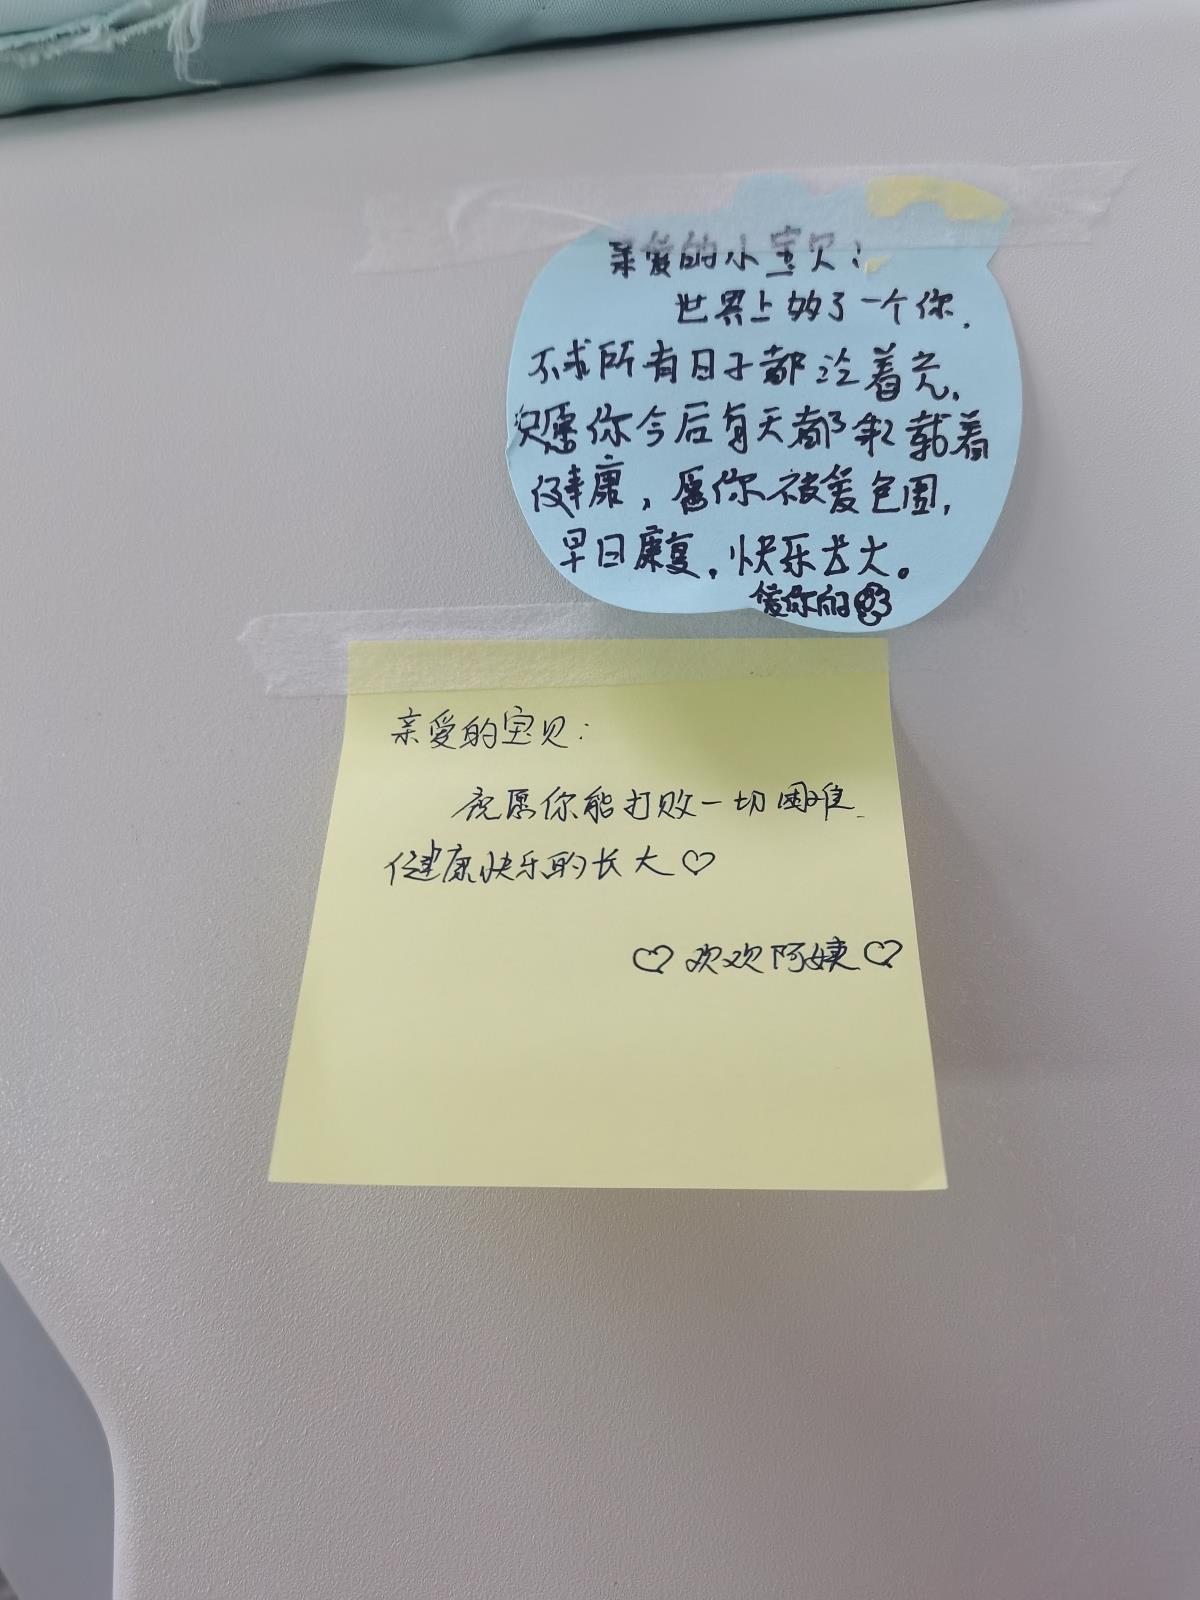 亲爱的小宝贝：
世界上够了一个你，
不求所有日子都泛着光，
只愿你今后每天都承载着
健康，愿你被爱包围，
早日康复，快乐长大。
爱你的
亲爱的宝贝：
祝愿你能打败一切困难
健康快乐的长大♡
♡欢欢阿姨♡